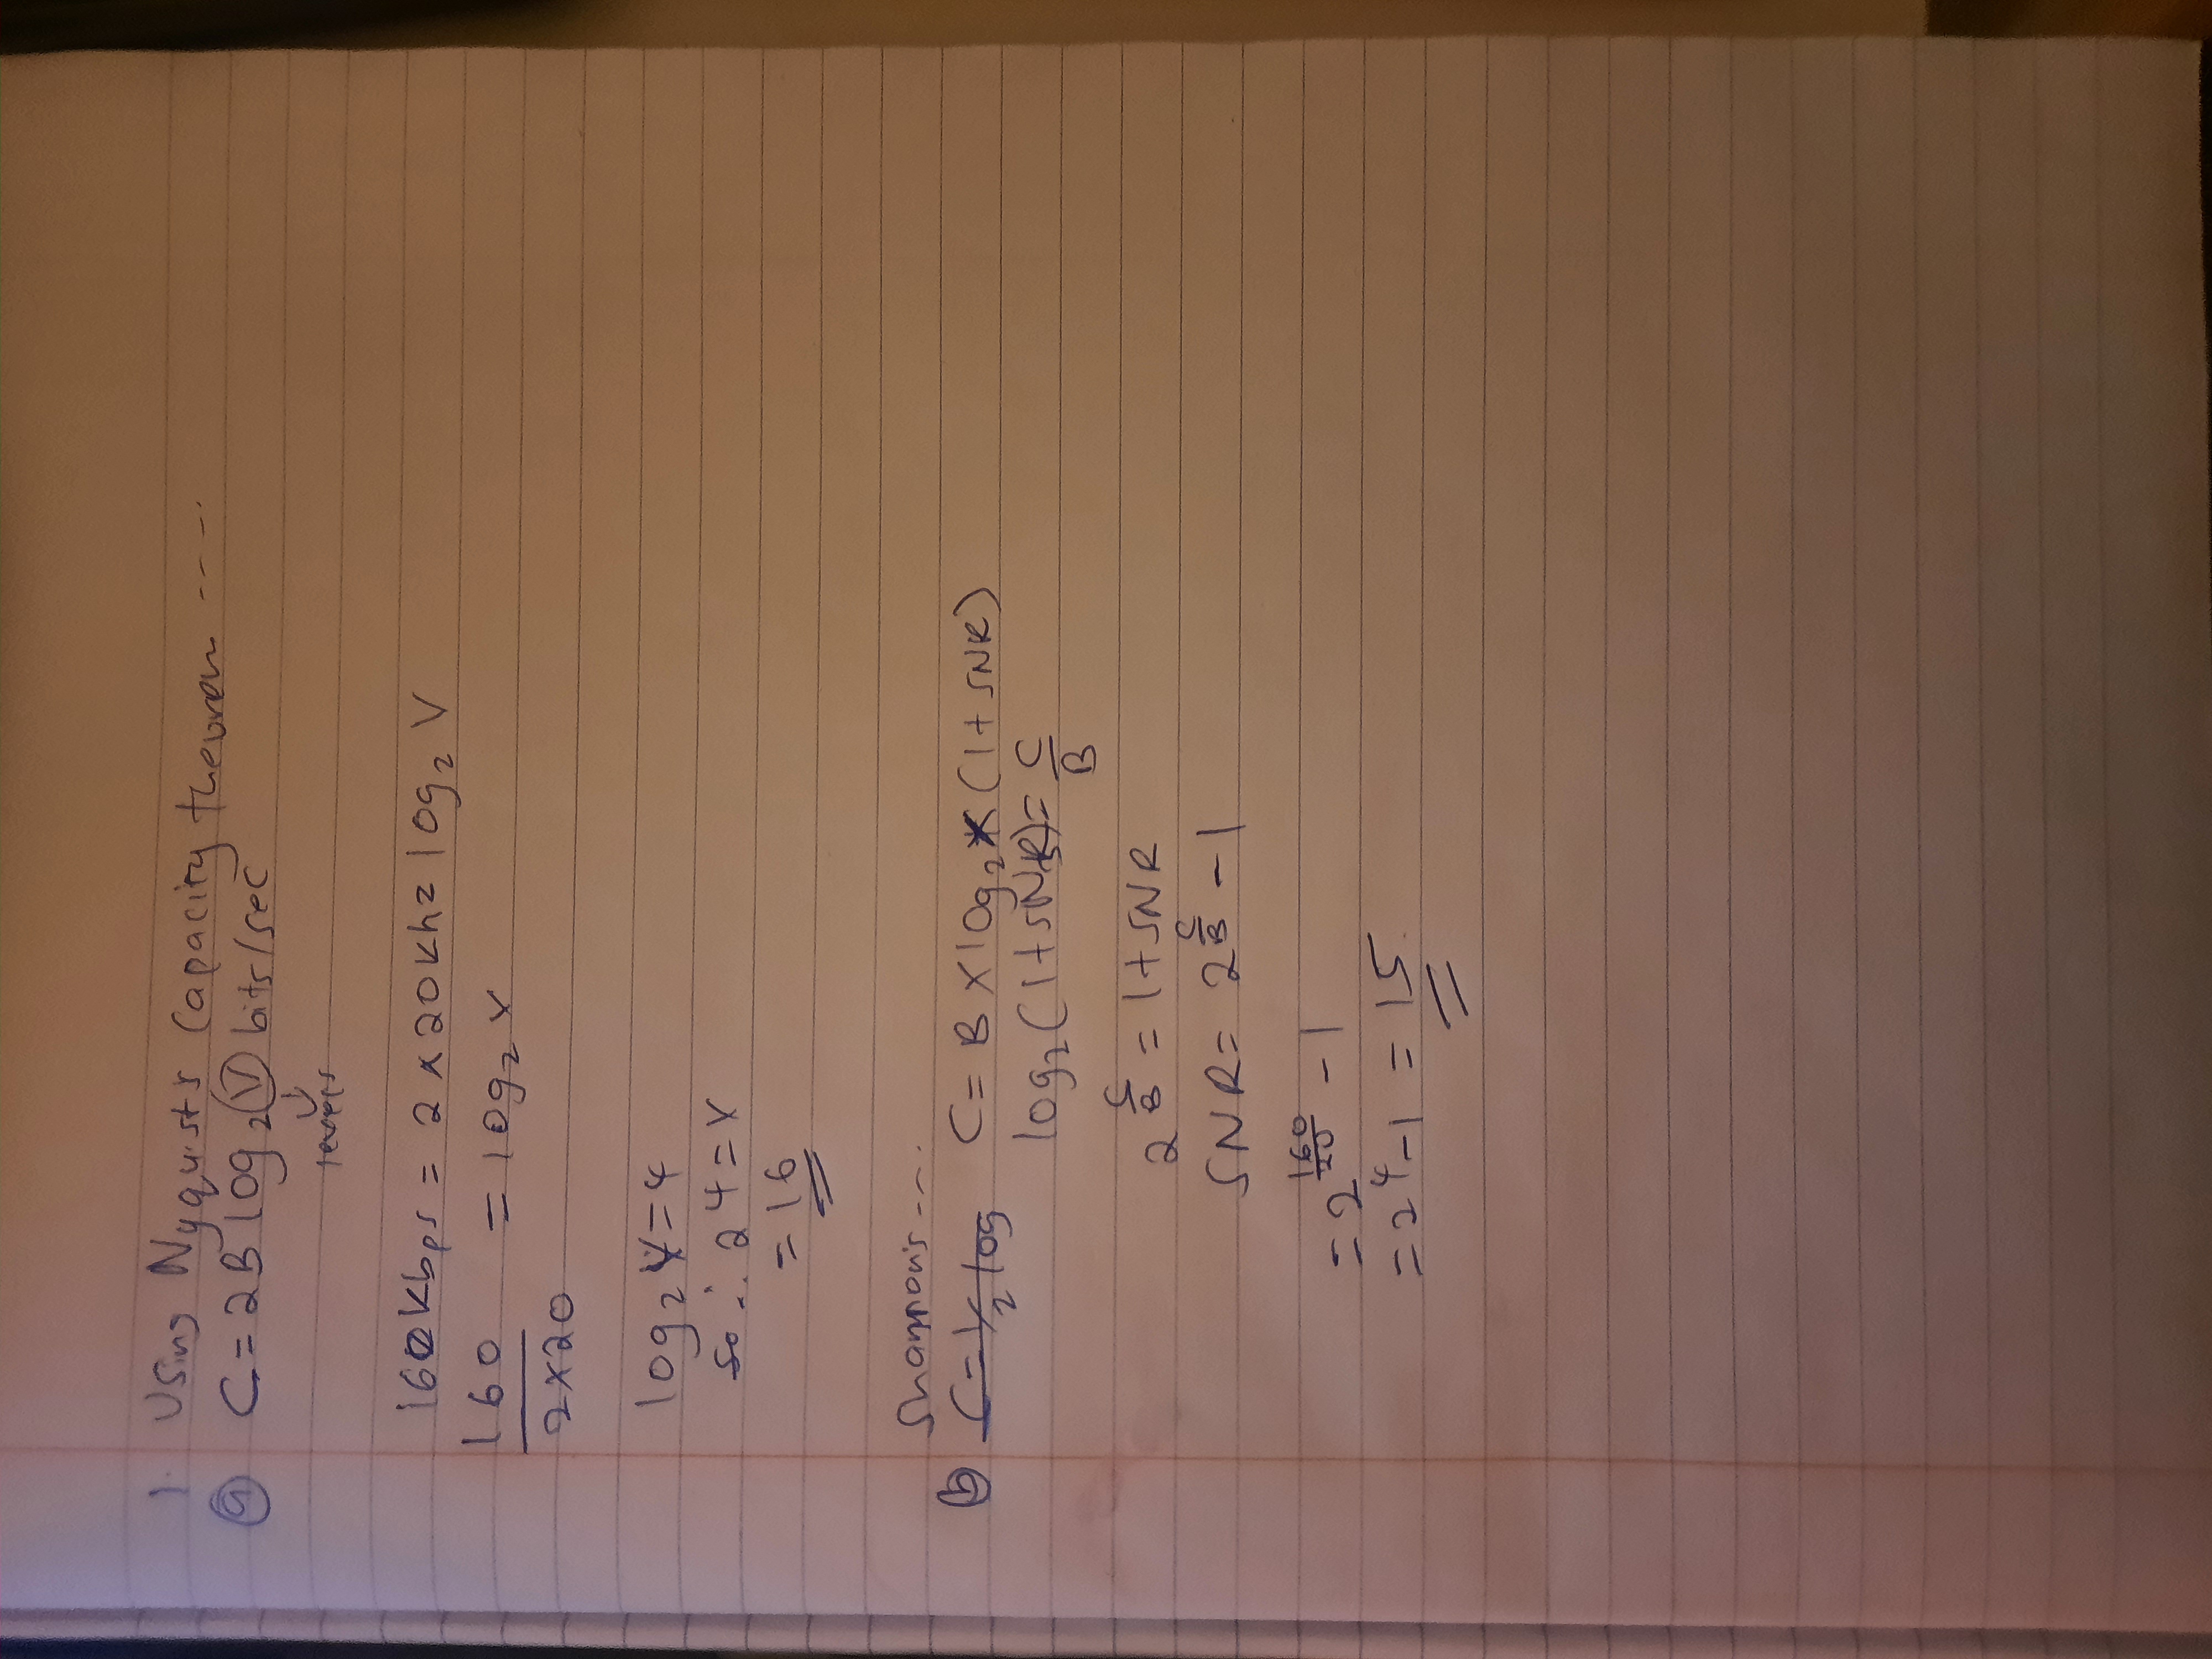 1. Using Nyquist's Capacity theorem ----.
(a) C = 2B log₂ V bits/sec
↓
levels
160kbps = 2 x 20khz log₂ V
160/(2x20) = log₂ V
log₂ V = 4
So ∴ 2⁴ = V
= 16
Shannon's ---.
(b) C = 1/2 log C = B x log₂ x (1 + SNR)
log₂ (1 + SNR) = C/B
2^(C/B) = 1 + SNR
SNR = 2^(C/B) - 1
= 2^(160/20) - 1
= 2⁴ - 1 = 15